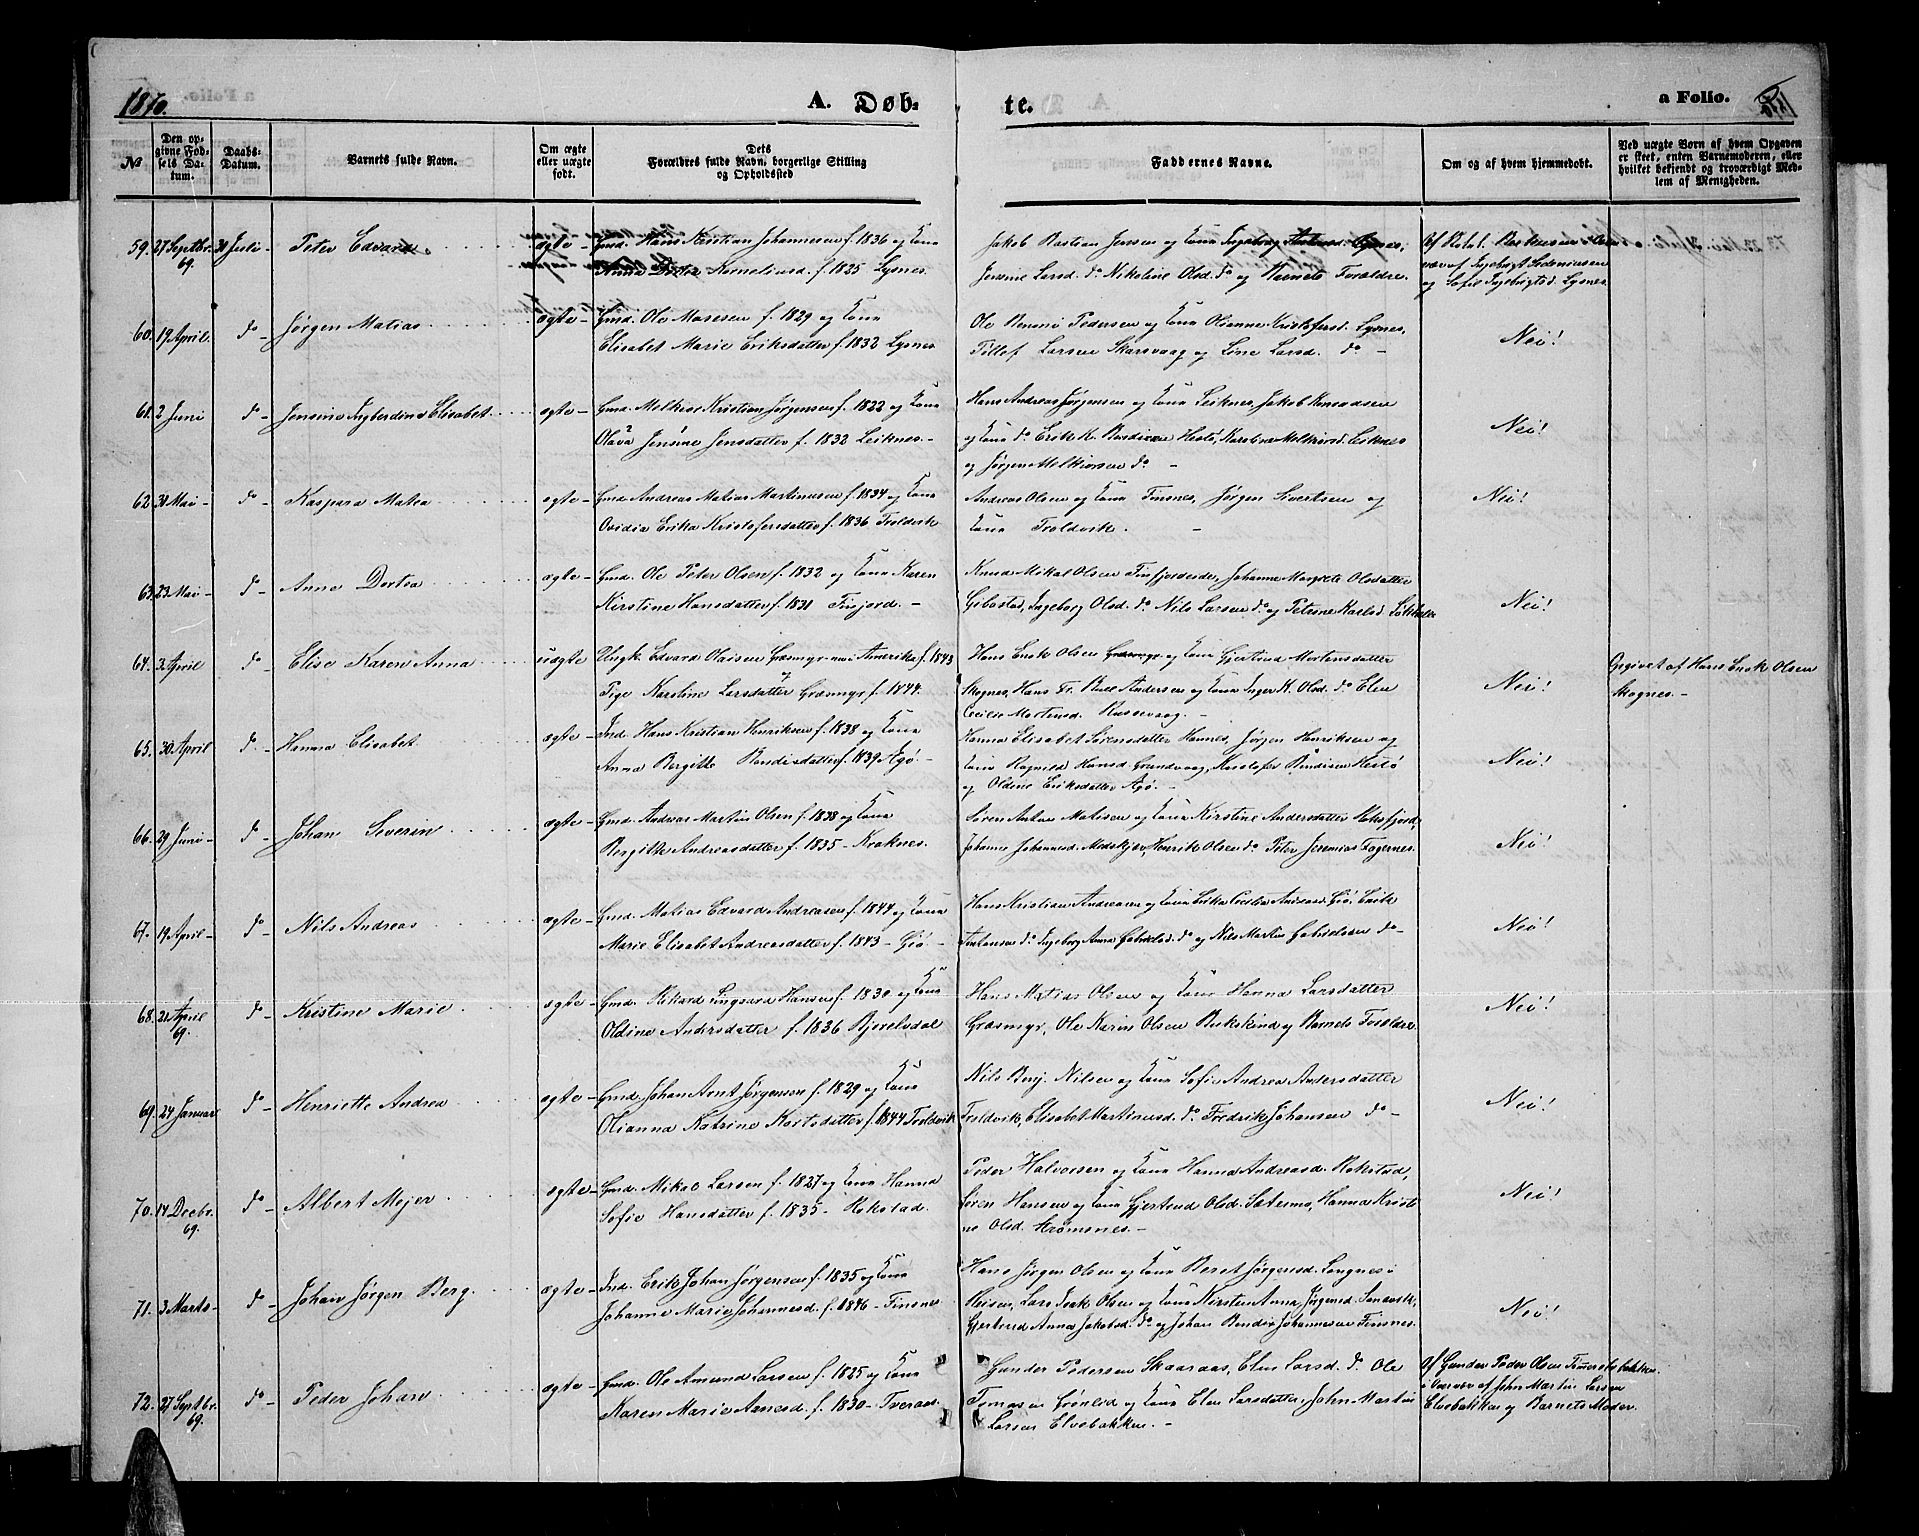 1870.
A. Døb-
te.
a Folio.
№
Den op-
givne Fød-
sels Da-
tum.
Daabs-
Datum.
Barnets fulde Navn.
Om ægte
eller uægte
født.
Dets
Forældres fulde Navn, borgerlige Stilling
og Opholdssted
Faddernes Navne.
Om og af hvem hjemmedøbt.
Ved uægte Børn af hvem Opgaven
er skeet, enten Barnemoderen, eller
hvilket bekjendt og troværdigt Med-
lem af Menigheden.
59. 27 Septbr. 69. 31 Juli - Peter Edvard ægte - Gmd. Hans Kristian Johannesen f. 1836 og Kone
Kornelisd. f. 1825 Lysnes.
Jakob Bastian Jensen og Kone Ingeborg Lysnes,
Larsd. do Nikoline Olsd. do og Barnets Forældre.
Af
af Ingebrigt
og Sofie Ingebrigtsd. Lysnes.
60. 19 April. do - Jørgen Matias ægte - Gmd. Ole f. 1829 og Kone
Elisabet Marie Eriksdatter f. 1832 Lysnes
Ole Pedersen og Kone Olianne Kristofersd. Lysnes,
Larsen Skarsvaag og Lone Larsd. do -
Nei!
61. 2 Juni do - Jensine Elisabet ægte - Gmd. Melkior Kristian Jørgensen f. 1822 og Kone
Olava Jensine Jensdatter f. 1832 Leiknes. -
Hans Andreas Jørgensen og Kone Leiknes, Jakob Konradsen
og Kone do Erik K. Bendixen Hestø, Karoline Melkiorsd. Leiknes
og Jørgen Melkiorsen do -
Nei!
62. 31 Mai - do - Kaspara Matea ægte - Gmd. Andreas Matias Martinusen f. 1834 og Kone
Ovidia Erika Kristofersdatter f. 1836 Troldvik
Andreas Olsen og Kone Finsnes, Jørgen Sivertsen og
Kone Troldvik. -
Nei!
63. 23 Mai - do - Anne Dortea ægte - Gmd. Ole Peter Olsen f. 1832 og Kone Karen
Kirstine Hansdatter f. 1831 Finfjord. -
Knud Mikal Olsen Johanna Margrete Olsdatter
Gibostad, Ingeborg Olsd. do Nils Larsen do og Petrine Karlsd.
Nei!
64. 3 April do - Elise Karen Anna uægte Ungk. Edvard Olaisen Græsmyr Amerika f. 1843
Pige Karoline Larsdatter Græsmyr f. 1844.
Hans Enok Olsen og Kone Gjertrud Mortensdatter
Skognes, Hans Fr. Andersen og Kone Inger K. Olsd. do Elen
Cecilie Mortensd. Russevaag. -
Nei!
Opgivet af Hans Enok Olsen
Skognes. -
65. 30 April do - Hanna Elisabet ægte - Ind. Hans Kristian Henriksen f. 1838 og Kone
Anna Bergitte Bendixdatter f. 1839 Agø. -
Hanna Elisabet Sørensdatter Jørgen Henriksen og
Kone Ragnild Hansd. Grundvaag, Kristofer Bendixen Hestø
og Oldine Eriksdatter Agø. -
Nei!
66. 29 Juni - do - Johan Severin ægte - Gmd. Andreas Martin Olsen f. 1838 og Kone
Bergitte Andreasdatter f. 1835 - Kraknes.
Søren Anton Matisen og Kone Kirstine Andersdatter
Johannesd. Henrik Olsen do Peter Jeremias Fagernes.
Nei!
67. 19 April - do - Nils Andreas ægte - Gmd. Matias Edvard Andreasen f. 1844 og Kone
Marie Elisabet Andreasdatter f. 1843 - Giø. -
Hans Kristian Andreasen og Kone Giø, Erik
do Ingeborg Anna Gabrielsd. do og Nils Martin Gabrielsen do -
Nei!
68. 21 April 69. do - Kristine Marie ægte - Gmd. Rikard Hansen f. 1830 og Kone
Oldine Andersdatter f. 1836 Bjorelvdal
Hans Matias Olsen og Kone Hanna Larsdatter
Græsmyr, Ole Karin Olsen og Barnets Forældre.
Nei!
69. 24 Januar do - Henriette Andrea ægte - Gmd. Johan Arnt Jørgensen f. 1829 og Kone
Olianna Katrine f. 1844 Troldvik
Nils Benj. Nilsen og Kone Sofie Andrea Andersdatter
Troldvik, Elisabet Martinusd. do Fredrik Johansen do -
Nei!
70. 14 Decbr. 69. do - Albert Mejer ægte - Gmd. Mikal Larsen f. 1827 og Kone Hanna
Sofie Hansdatter f. 1835 - Rokstad.
Peder Halvorsen og Kone Hanna Andreasd. Rokstad,
Søren Hansen og Kone Gjertrud Olsd. Hanna Kristi-
ne Olsd. Strømsnes. -
Nei!
71. 3 Marts - do - Johan Jørgen Berg. ægte - Ind. Erik Johan Jørgensen f. 1835 og Kone
Johanne Marie Johannesd. f. 1846 - Finsnes
Hans Jørgen Olsen og Kone Beret Jørgensd. Langnes i
Reisen, Lars Isak Olsen og Kone Kirsten Anna Jørgensd. Sandvik,
Anna Jakobsd. do og Johan Bendix Johannesen Finsnes.
Nei!
72. 27 Septbr. 69. do - Peder Johan ægte - Gmd. Ole Amund Larsen f. 1825 og Kone
Karen Marie f. 1830 -
Gunder Pedersen Skaaraas, Elen Larsd. do Ole
Tomas og Kone Elen Larsdatter, John Martin
Larsen Elvebakken. -
Af Gunder Peder Olsen
i Overvær af John Martin Larsen
Elvebakken og Barnets Moder.